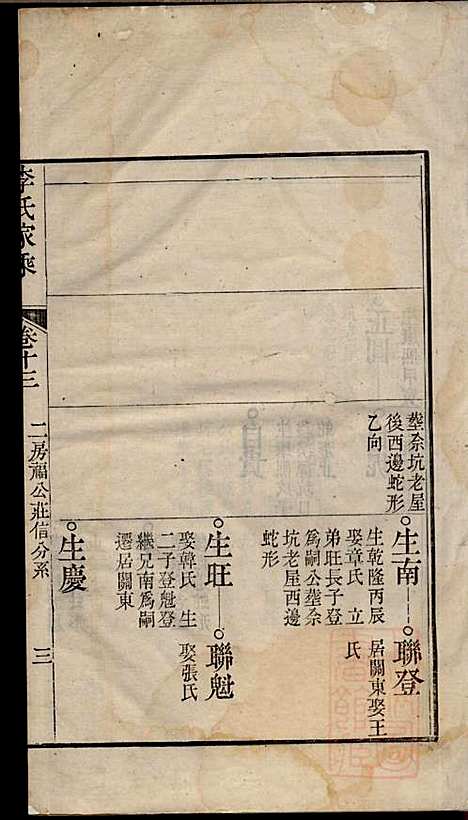 塟柰坑老屋
後西邊蛇形
乙向
生南
聯登
生乾隆丙辰
娶章氏 立
弟旺長子登
爲嗣公塟柰
坑老屋西邊
蛇形
居關東娶王
氏
生旺
聯魁
娶韓氏 生
二子登魁登
繼兄南爲嗣
遷居關東
娶張氏
生慶
李氏家乘
卷十三
二房福公莊信分系
三